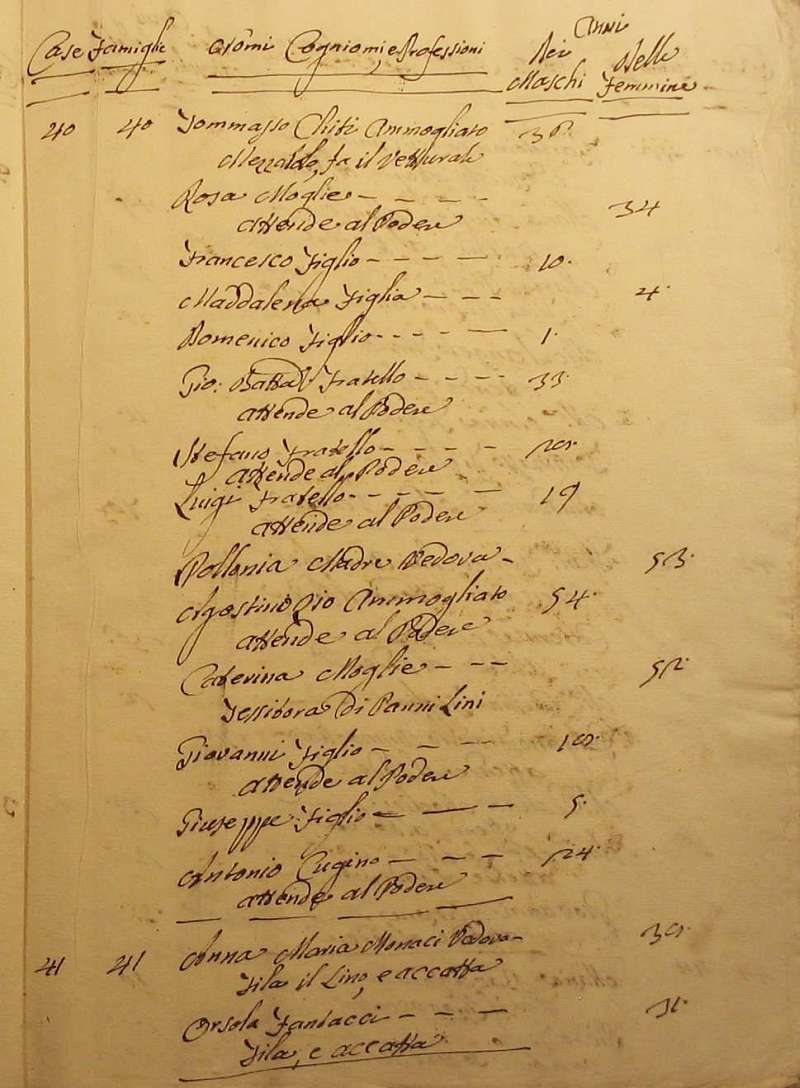 Anni
Case Famiglie Nomi Cogniomi, e Professioni Dei Delle
Maschi Femmine
40 40 Tommasso Chiti Ammogliato
Mezzaiolo, fa il Vetturale
Rosa Moglie - - - - 34
Attende al Podere
Francesco Figlio - - - - 10.
Maddalena Figlia - - - 4.
Domenico Figlio - - - - 1.
Gio: Batta Fratello - - - - 33.
attende al Podere
Stefano Fratello - - - -
attende al Podere
Luigi Fratello - - - - 19
attende al Podere
Pollonia Madre Vedova - 53.
Agostino Zio Ammogliato 54.
attende al Podere
Caterina Moglie - - - 52.
Tessitora di Panni Lini
Giovanni Figlio - - -
attende al Podere
Giuseppe Figlio - - - 5.
Antonio Cugino - - - 24.
attende al Podere
41 41 Anna Maria Monaci Vedova -
Fila il Lino, e accatta
Orsola Fantacci - - - -
Fila, e accatta